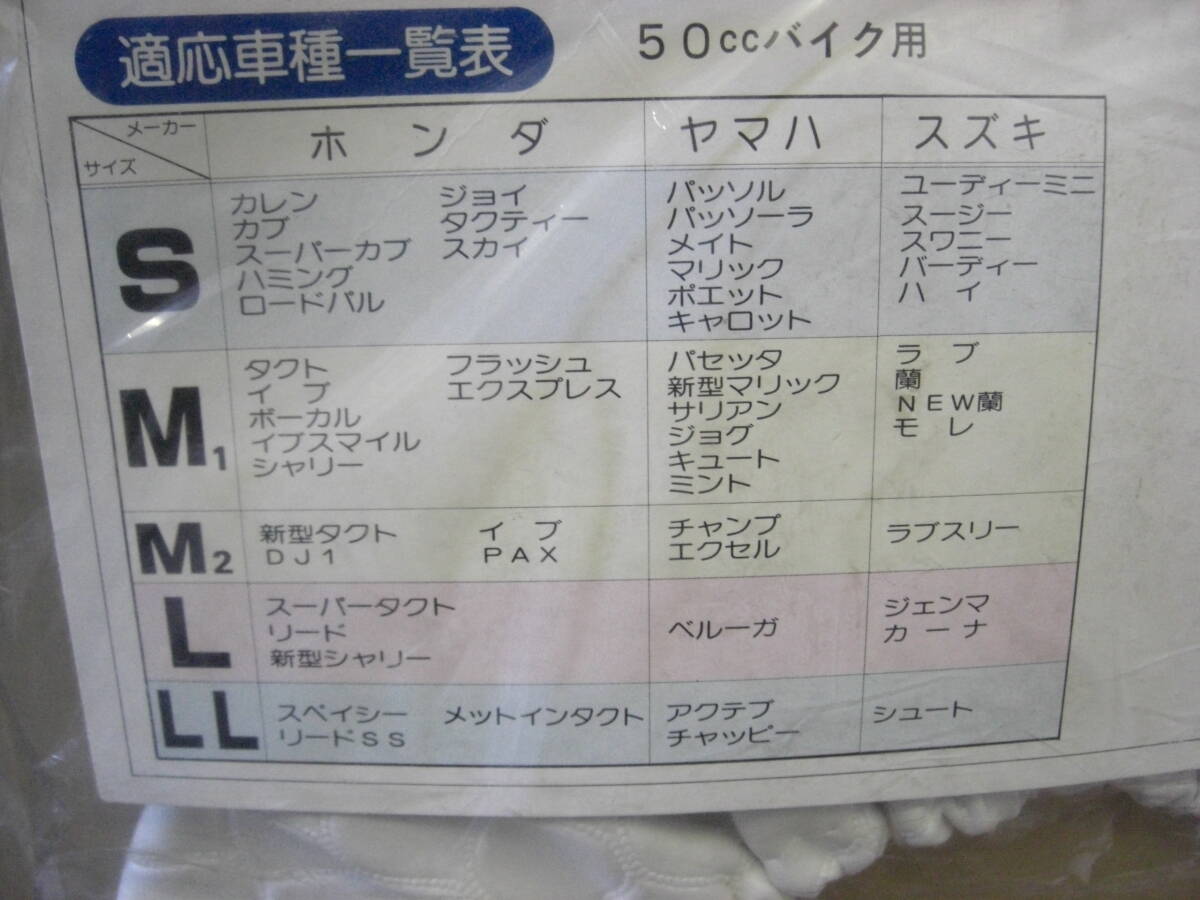 適応車種一覧表
50ccバイク用
メーカー
サイズ
ホンダ
ヤマハ
スズキ
S
カレン
カブ
スーパーカブ
ハミング
ロードパル
ジョイ
タクティー
スカイ
パッソル
パッソーラ
メイト
マリック
ポエット
キャロット
ユーディーミニ
スージー
スワニー
バーディー
ハイ
M1
タクト
イブ
ボーカル
イブスマイル
シャリー
フラッシュ
エクスプレス
パセッタ
新型マリック
サリアン
ジョグ
キュート
ミント
ラブ
蘭
NEW蘭
モレ
M2
新型タクト
DJ1
イブ
PAX
チャンプ
エクセル
ラブスリー
L
スーパータクト
リード
新型シャリー
ベルーガ
ジェンマ
カーナ
LL
スペイシー
リードSS
メットインタクト
アクテブ
チャッピー
シュート